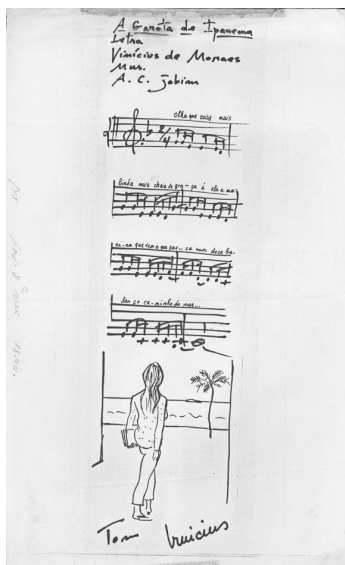 A Garota de Ipanema
Letra
Vinícius de Moraes
Mus.
A. C. Jobim
Olha que coisa mais
linda mais cheia de gra-ça é ela a me-
ni-na que vem e que pas-sa num doce ba-
lan ço ca-minho do mar...
Tom Vinicius